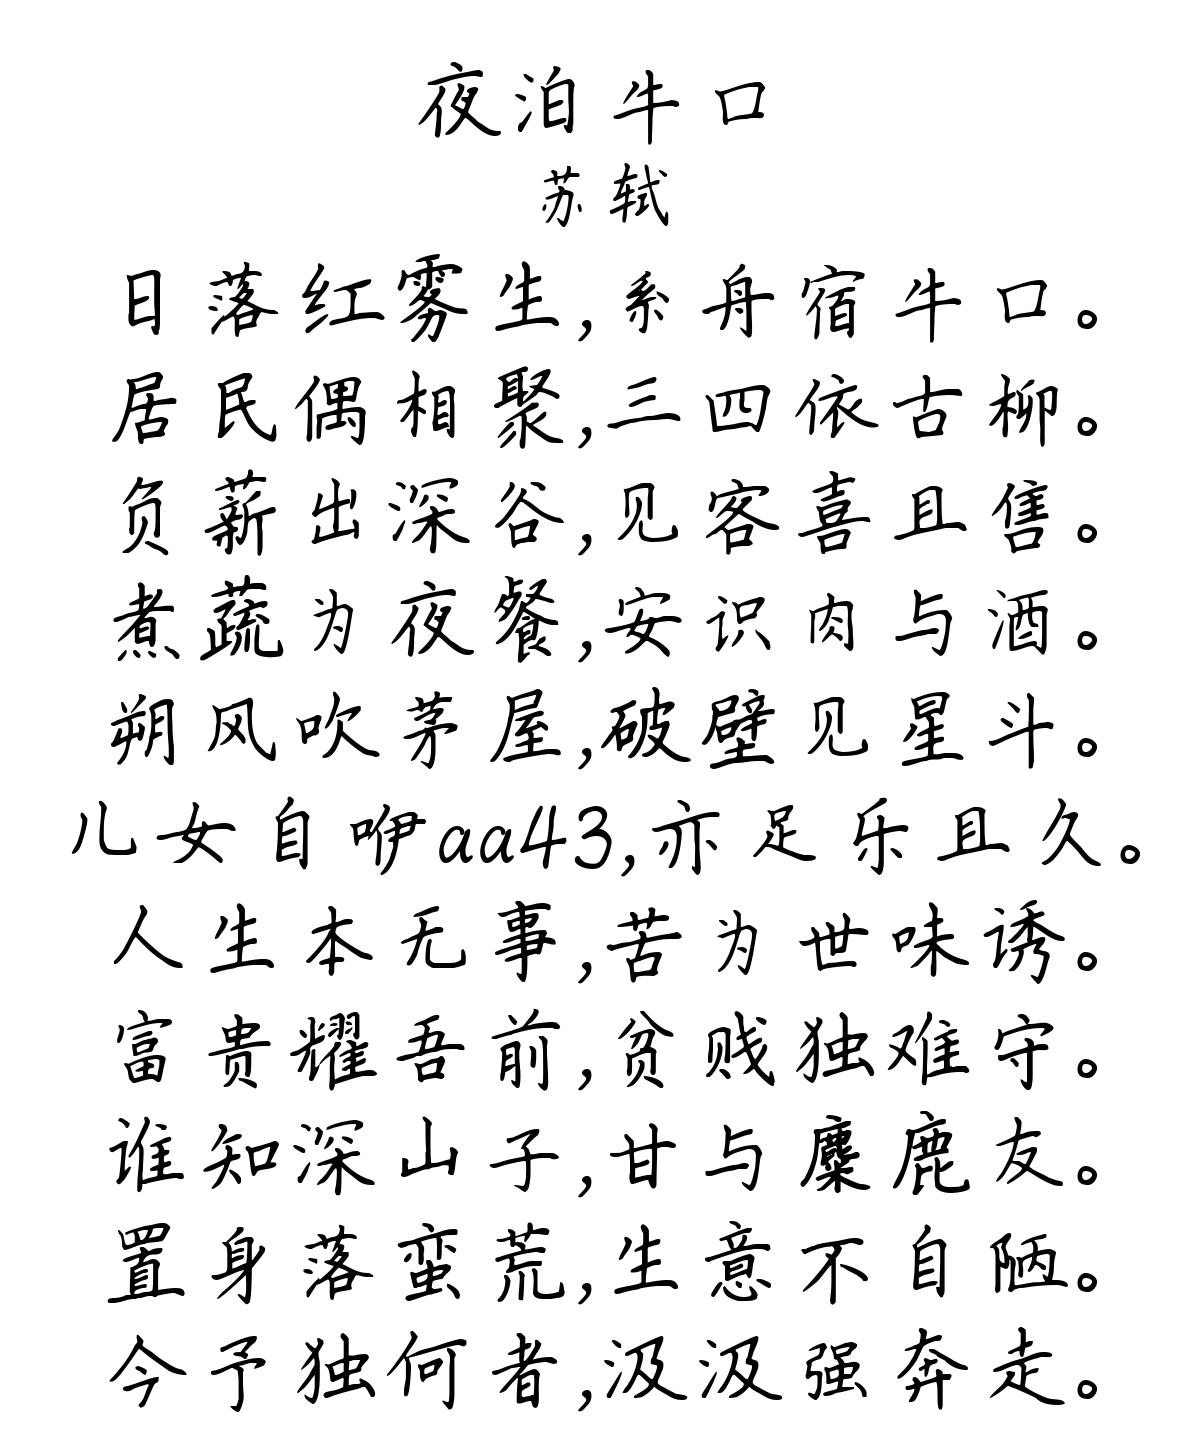 夜泊牛口
苏轼
日落红雾生,系舟宿牛口。
居民偶相聚,三四依古柳。
负薪出深谷,见客喜且售。
煮蔬为夜餐,安识肉与酒。
朔风吹茅屋,破壁见星斗。
儿女自咿aa43,亦足乐且久。
人生本无事,苦为世味诱。
富贵耀吾前,贫贱独难守。
谁知深山子,甘与麋鹿友。
置身落蛮荒,生意不自陋。
今予独何者,汲汲强奔走。